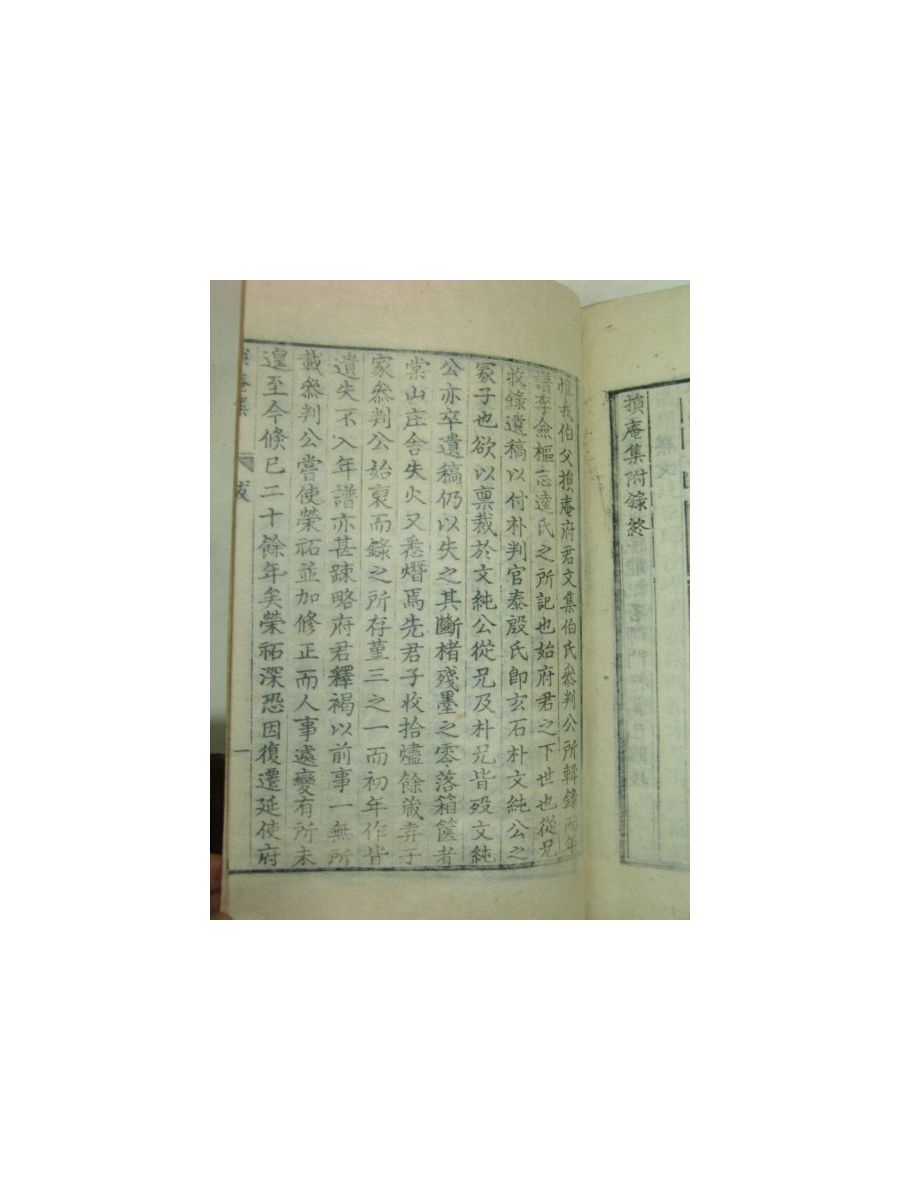 損庵集附錄終
惟我伯父損庵府君文集伯氏叅判公所輯錄而年
譜李僉樞志逵氏之所記也始府君之下世也從兄
收錄遺稿以付朴判官泰殷氏卽玄石朴文純公之
冢子也欲以禀裁於文純公從兄及朴兄皆歿文純
公亦卒遺稿仍以失之其斷楮殘墨之零落箱篋者
棠山庄舍失火又悉燬焉先君子收拾燼餘藏弆于
家叅判公始裒而錄之所存菫三之一而初年作皆
遺失不入年譜亦甚踈略府君釋褐以前事一無所
載叅判公嘗使榮祏並加修正而人事遽變有所未
遑至今倏已二十餘年矣榮祏深恐因復遷延使府
庵集 跋 一